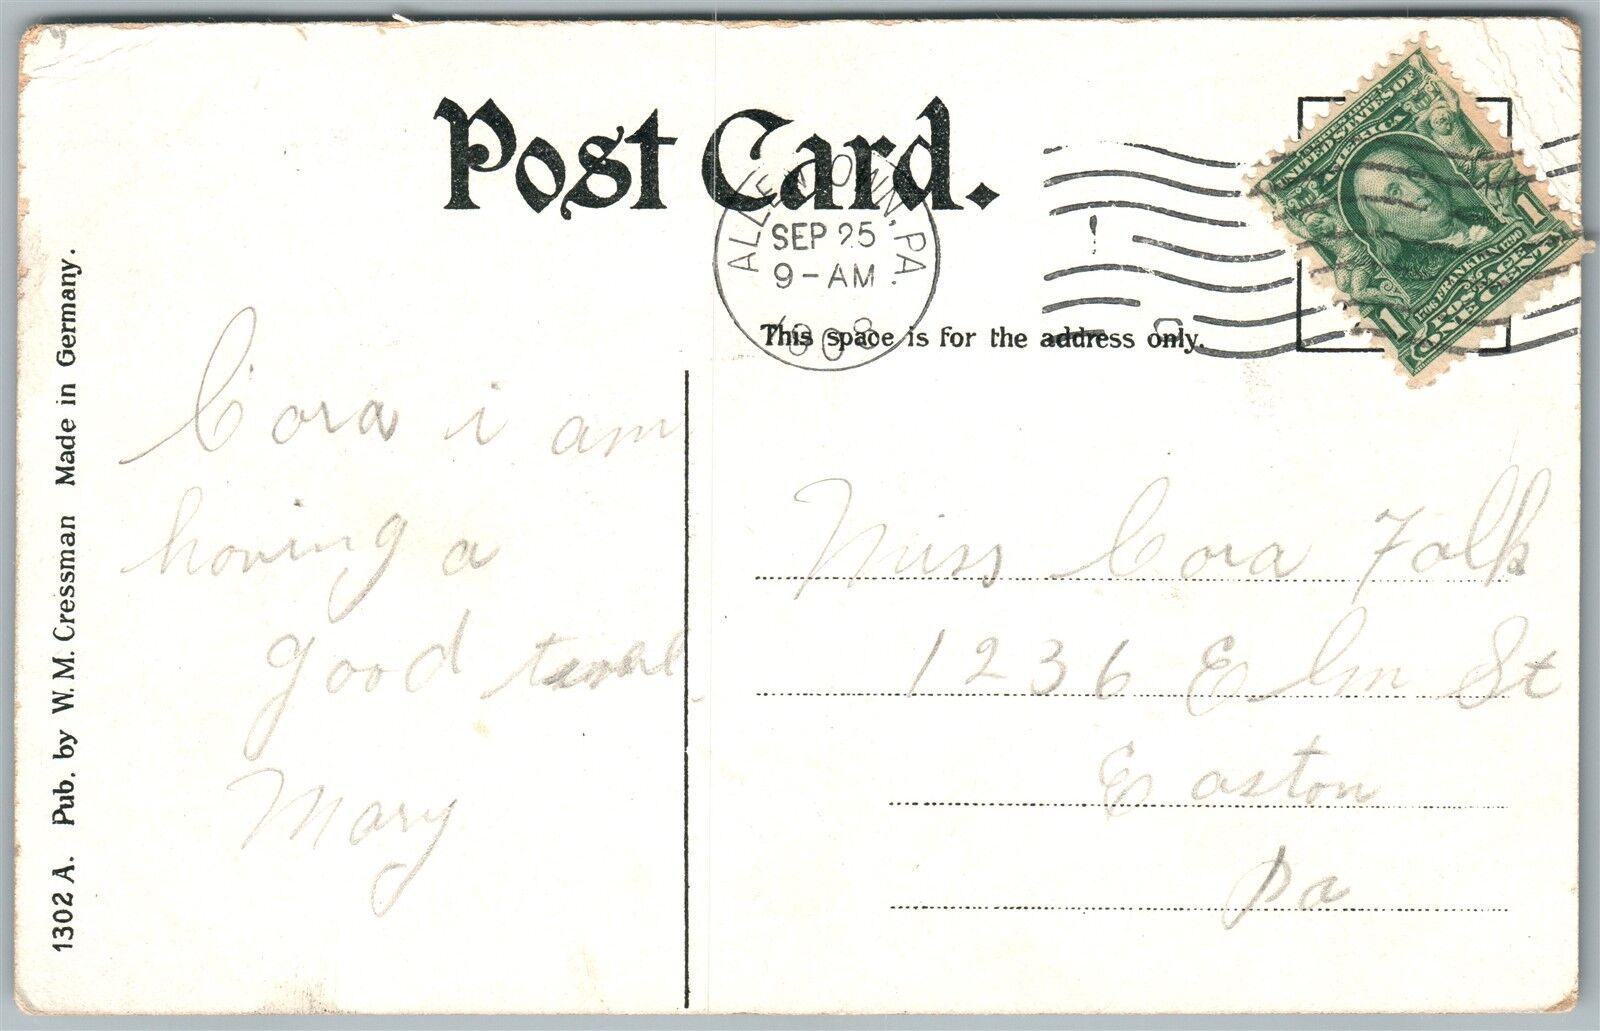 Post Card.
ALLENTOWN, PA.
SEP 25
9-AM
1908
SERIES 1902
UNITED STATES OF
AMERICA
1706 FRANKLIN 1790
POSTAGE
1 1
ONE CENT
This space is for the address only.
Cora i am
having a
good
Mary
Miss Cora Folk
1236 Elm St
Easton
Pa
1302 A. Pub. by W. M. Cressman Made in Germany.